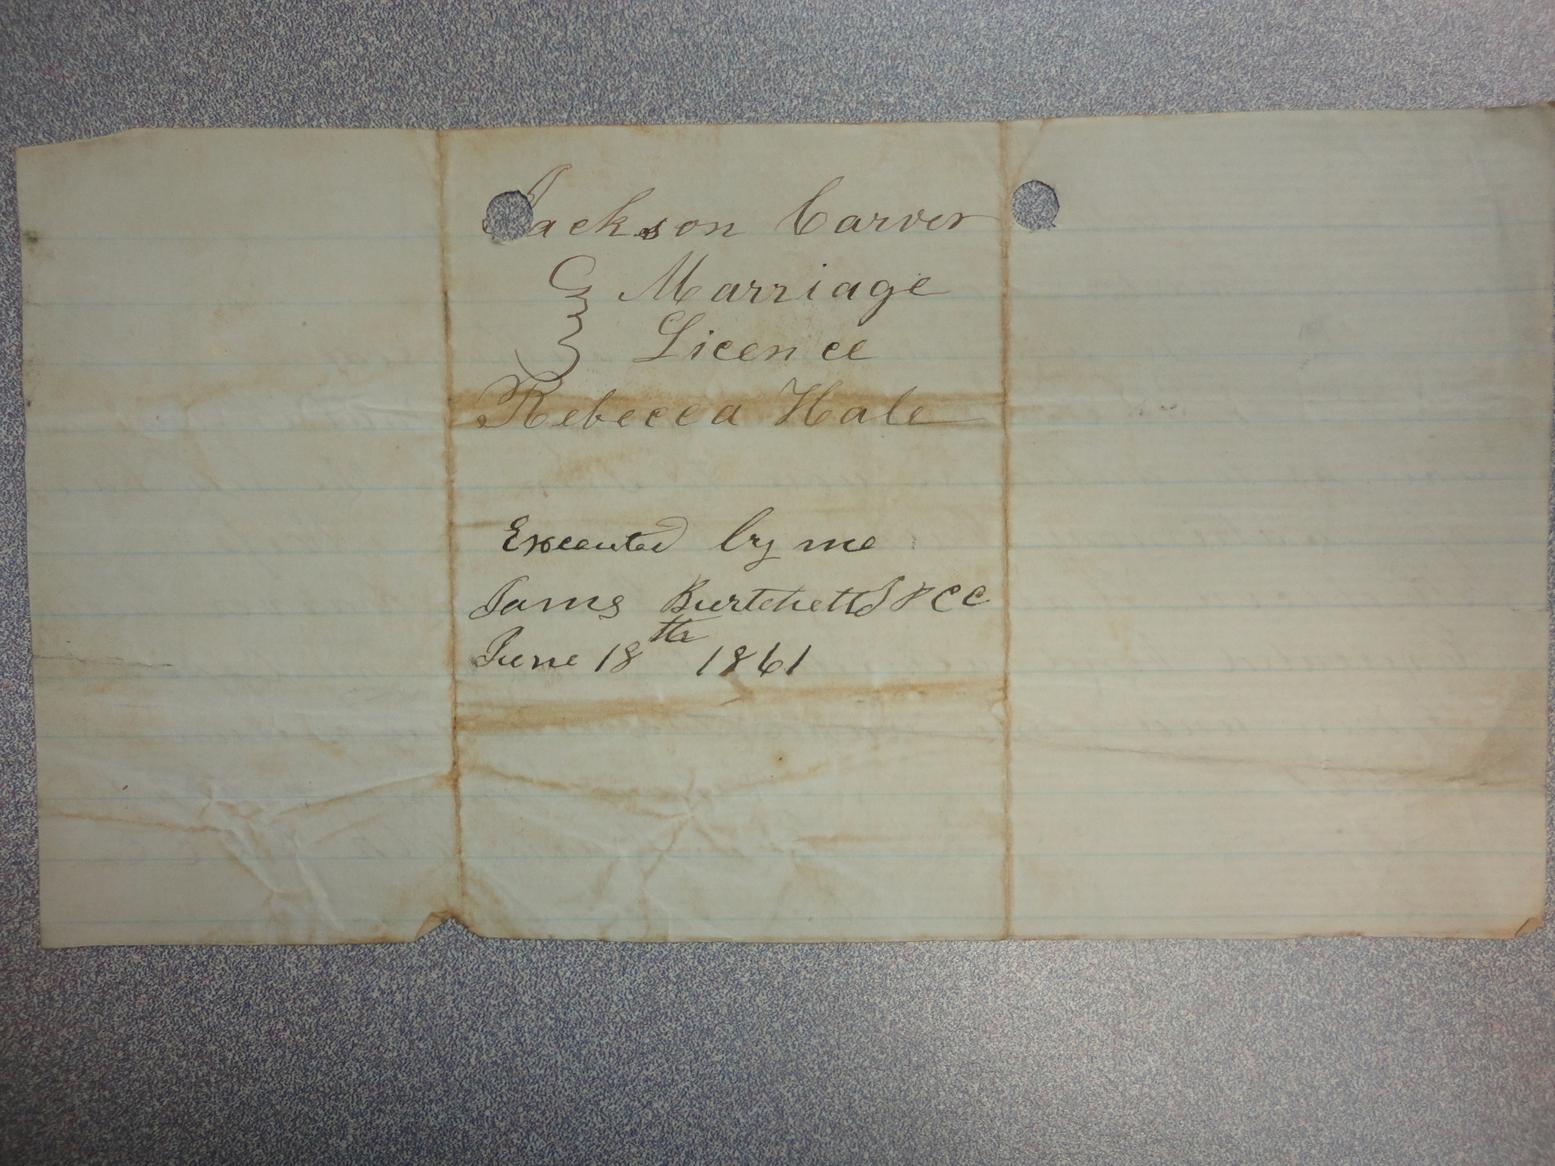 Jackson Carver
Marriage
Licence
Rebecca Hale
Executed by me
James Burtchett J P C C
June 18th 1861